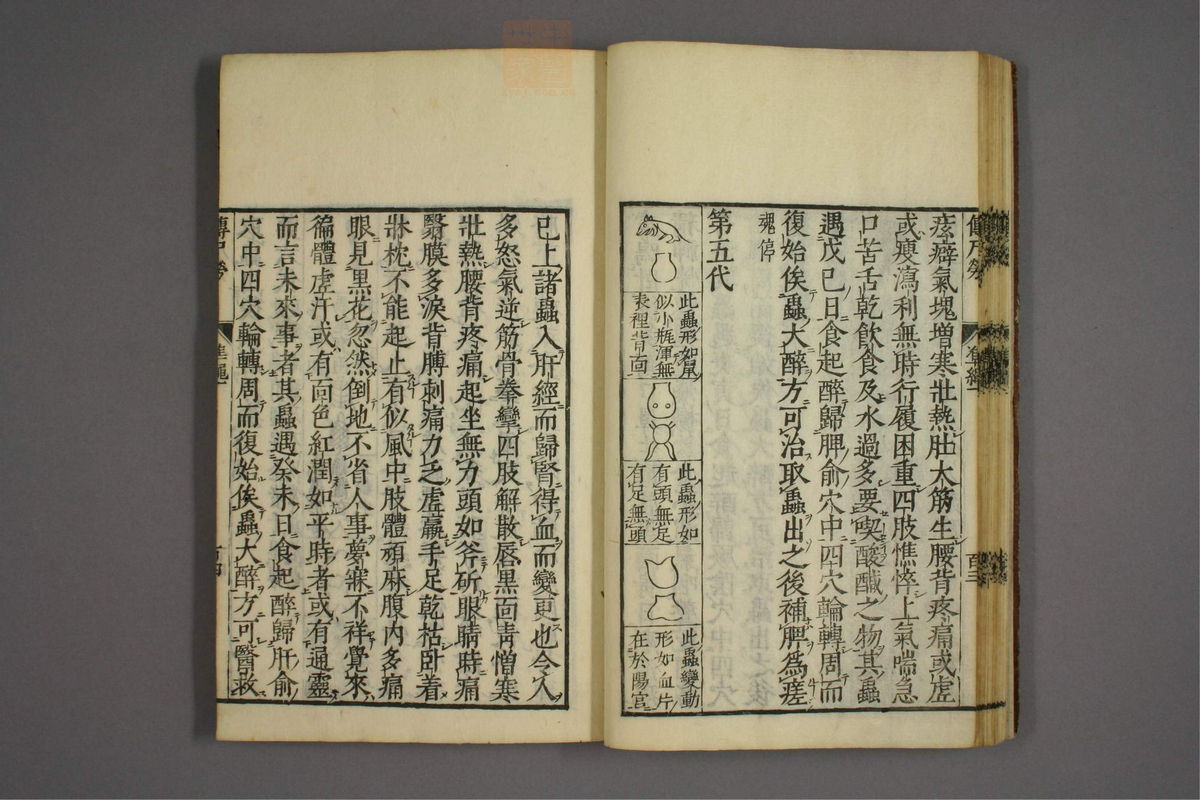 痃癖氣塊增寒壯熱肚大筋生腰背疼痛或虛
或瘦瀉利無時行履困重四肢憔悴上氣喘急
口苦舌乾飮食及水過多要喫酸醎之物其蟲
遇戊巳日食起醉歸脾俞穴中四穴輪轉周而
復始俟蟲大醉方可治取蟲出之後補脾爲瘥
魂停
第五代
此蟲形如鼠
似小瓶渾無
表裡背面
此蟲形如
有頭無足
有足無頭
此蟲變動
形如血片
在於陽宮
已上諸蟲入肝經而歸腎得血而變更也令人
多怒氣逆筋骨拳攣四肢解散唇黑面靑憎寒
壯熱腰背疼痛起坐無力頭如斧斫眼睛時痛
翳膜多淚背膊刺痛力乏虛羸手足乾枯卧着
牀枕不能起止有似風中肢體頑麻腹內多痛
眼見黑花忽然倒地不省人事夢寐不祥覺來
徧體虛汗或有面色紅潤如平時者或有通靈
而言未來事者其蟲遇癸未日食起醉歸肝俞
穴中四穴輪轉周而復始俟蟲大醉方可醫救